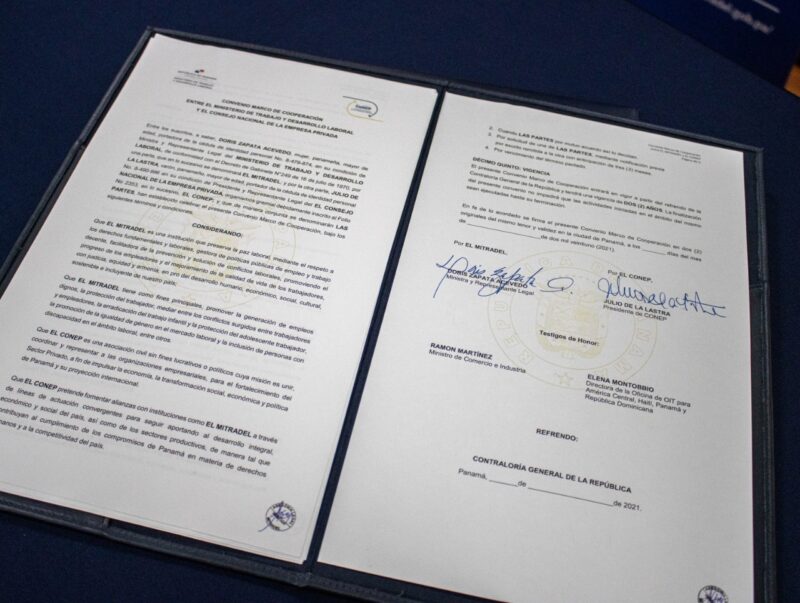 CONVENIO MARCO DE COOPERACIÓN
ENTRE EL MINISTERIO DE TRABAJO Y DESARROLLO LABORAL
Y EL CONSEJO NACIONAL DE LA EMPRESA PRIVADA
Entre los suscritos, a saber, DORIS ZAPATA ACEVEDO, mujer, panameña, mayor de
edad, portadora de la cédula de identidad personal No. en su condición de
Ministra y Representante Legal del MINISTERIO DE TRABAJO Y DESARROLLO
LABORAL, de conformidad con el Decreto de Gabinete N°249 de 16 de julio de 1970, por
una parte, que en lo sucesivo se denominará EL MITRADEL, y por la otra parte, JULIO DE
LA LASTRA varón, panameño, mayor de edad, portador de la cédula de identidad personal
No. en su condición de Presidente y Representante Legal del EL CONSEJO
NACIONAL DE LA EMPRESA PRIVADA, organismo gremial debidamente inscrito al Folio
No. en lo sucesivo, EL CONEP; y que de manera conjunta se denominarán LAS
PARTES, han establecido celebrar el Convenio Marco de Cooperación, bajo los
siguientes términos
CONSIDERANDO:
Que EL MITRADEL es una institución que promueve la paz laboral, mediante el respeto a
los derechos fundamentales y laborales, gestora de políticas públicas de empleo y trabajo
decente, facilitadora de la prevención y solución de conflictos laborales, promoviendo el
progreso de los empleadores y el mejoramiento de la calidad de vida de los trabajadores,
con justicia, equidad y armonía, en pro del desarrollo humano, económico, social, cultural,
sostenible e incluyente de nuestro país.
Que EL MITRADEL tiene como fines principales, promover la generación de empleos
dignos, la protección del trabajador, mediar entre los conflictos surgidos entre trabajadores
y empleadores, la erradicación del trabajo infantil y la protección del adolescente trabajador,
la promoción de la igualdad de género en el mercado laboral y la inclusión de personas con
discapacidad en el ámbito laboral, entre otros.
Que EL CONEP es una asociación civil sin fines lucrativos o políticos cuya misión es unir,
coordinar y representar a las organizaciones empresariales, para el fortalecimiento del
Sector Privado, a fin de impulsar la economía, la transformación social, económica y política
de Panamá y su proyección internacional.
Que EL CONEP pretende fomentar alianzas con instituciones como EL MITRADEL a través
de líneas de actuación convergentes para seguir aportando al desarrollo integral,
económico y social del país, así como de los sectores productivos, de manera tal que
contribuyan al cumplimiento de los compromisos de Panamá en materia de derechos
humanos y a la competitividad del país.
2. Cuando LAS PARTES por mutuo acuerdo así lo decidan.
3. Por solicitud de una de LAS PARTES, mediante notificación previa
por escrito remitida a la otra con antelación de tres (3) meses.
4. Por vencimiento del término pactado.
DÉCIMO QUINTO: VIGENCIA
El presente Convenio Marco de Cooperación entrará en vigor a partir del refrendo de la
Contraloría General de la República y tendrá una vigencia de DOS (2) AÑOS. La finalización
del presente convenio no impedirá que las actividades iniciadas en el ámbito del mismo
sean ejecutadas hasta su terminación.
En fe de lo acordado se firma el presente Convenio Marco de Cooperación en dos (2)
originales del mismo tenor y validez en la ciudad de Panamá, a los ____ días del mes
de ____________________ de dos mil veintiuno (2021).
Por EL MITRADEL
Por EL CONEP,
Doris Zapata A.
DORIS ZAPATA ACEVEDO
Ministra y Representante Legal
JULIO DE LA LASTRA
Presidente de CONEP
Testigos de Honor:
RAMON MARTÍNEZ
Ministro de Comercio e Industria
ELENA MONTOBBIO
Directora de la Oficina de OIT para
América Central, Haití, Panamá y
República Dominicana
REFRENDO:
CONTRALORÍA GENERAL DE LA REPÚBLICA
Panamá, ______de ____________________de 2021.